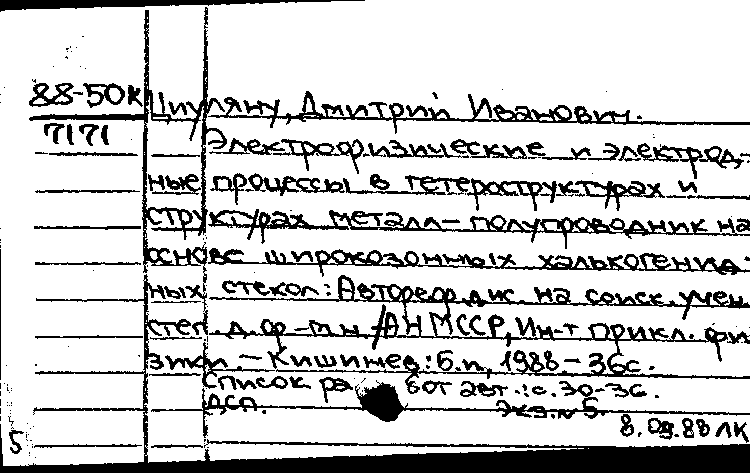 88-50К Циуляну, Дмитрий Иванович.
7171
Электрофизические и электрод-
ные процессы в гетероструктурах и
структурах металл-полупроводник на
основе широкозонных халькогенид-
ных стекол: Автореф. дис. на соиск. учен.
степ. д. ф-м.н. /АН МССР, Ин-т прикл. фи
зики. - Кишинев: Б.и, 1988 - 36с.
Список работ авт.: с. 30-36.
ДСП. Экз. № 5.
8.09.88 ЛК
5